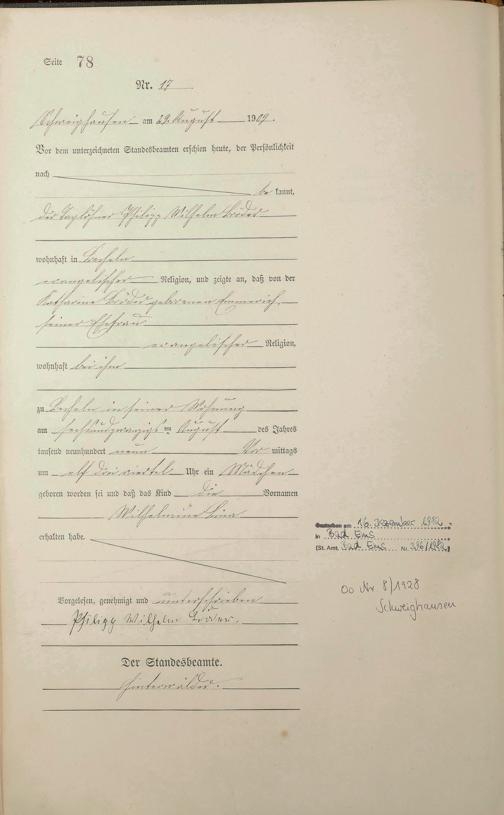 Seite 78
Nr. 17
Schweighausen am 29. August 1909.
Vor dem unterzeichneten Standesbeamten erschien heute, der Persönlichkeit
nach
be kannt,
der Taglöhner Philipp Wilhelm
wohnhaft in Becheln
evangelischer Religion, und zeigte an, daß von der
Katharine geborenen Emmerich,
seiner Ehefrau
evangelischer Religion,
wohnhaft bei ihm
zu Becheln in seiner Wohnung
am sechsundzwanzigsten August des Jahres
tausend neunhundert neun Vor mittags
um elf drei viertel Uhr ein Mädchen
geboren worden sei und daß das Kind die Vornamen
Wilhelmine Lina
erhalten habe.
Vorgelesen, genehmigt und unterschrieben
Philipp Wilhelm
Der Standesbeamte.
Hinterwälder.
Gestorben am 16. Dezember 1982
in Bad Ems
(St. Amt Bad Ems Nr. 296/1982)
oo Nr 8/1928
Schweighausen